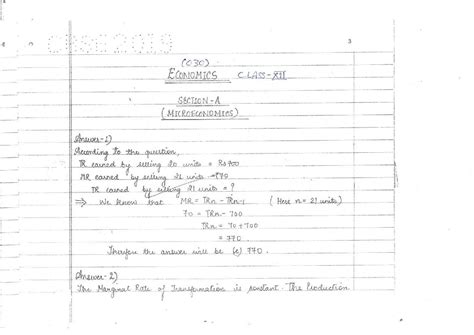 CBSE 2019
3
(030)
ECONOMICS CLASS-XII
SECTION-A
(MICROECONOMICS)
Answer-1)
According to the question,
TR earned by selling 20 units = Rs 700
MR earned by selling 21 units = ₹70
TR earned by selling 21 units = ?
⇒ We know that MR = TRn - TRn-1 (Here n = 21 units)
70 = TRn - 700
TRn = 70 + 700
= 770
Therefore the answer will be 770.
Answer-2)
The Marginal Rate of Transformation is constant. The Production